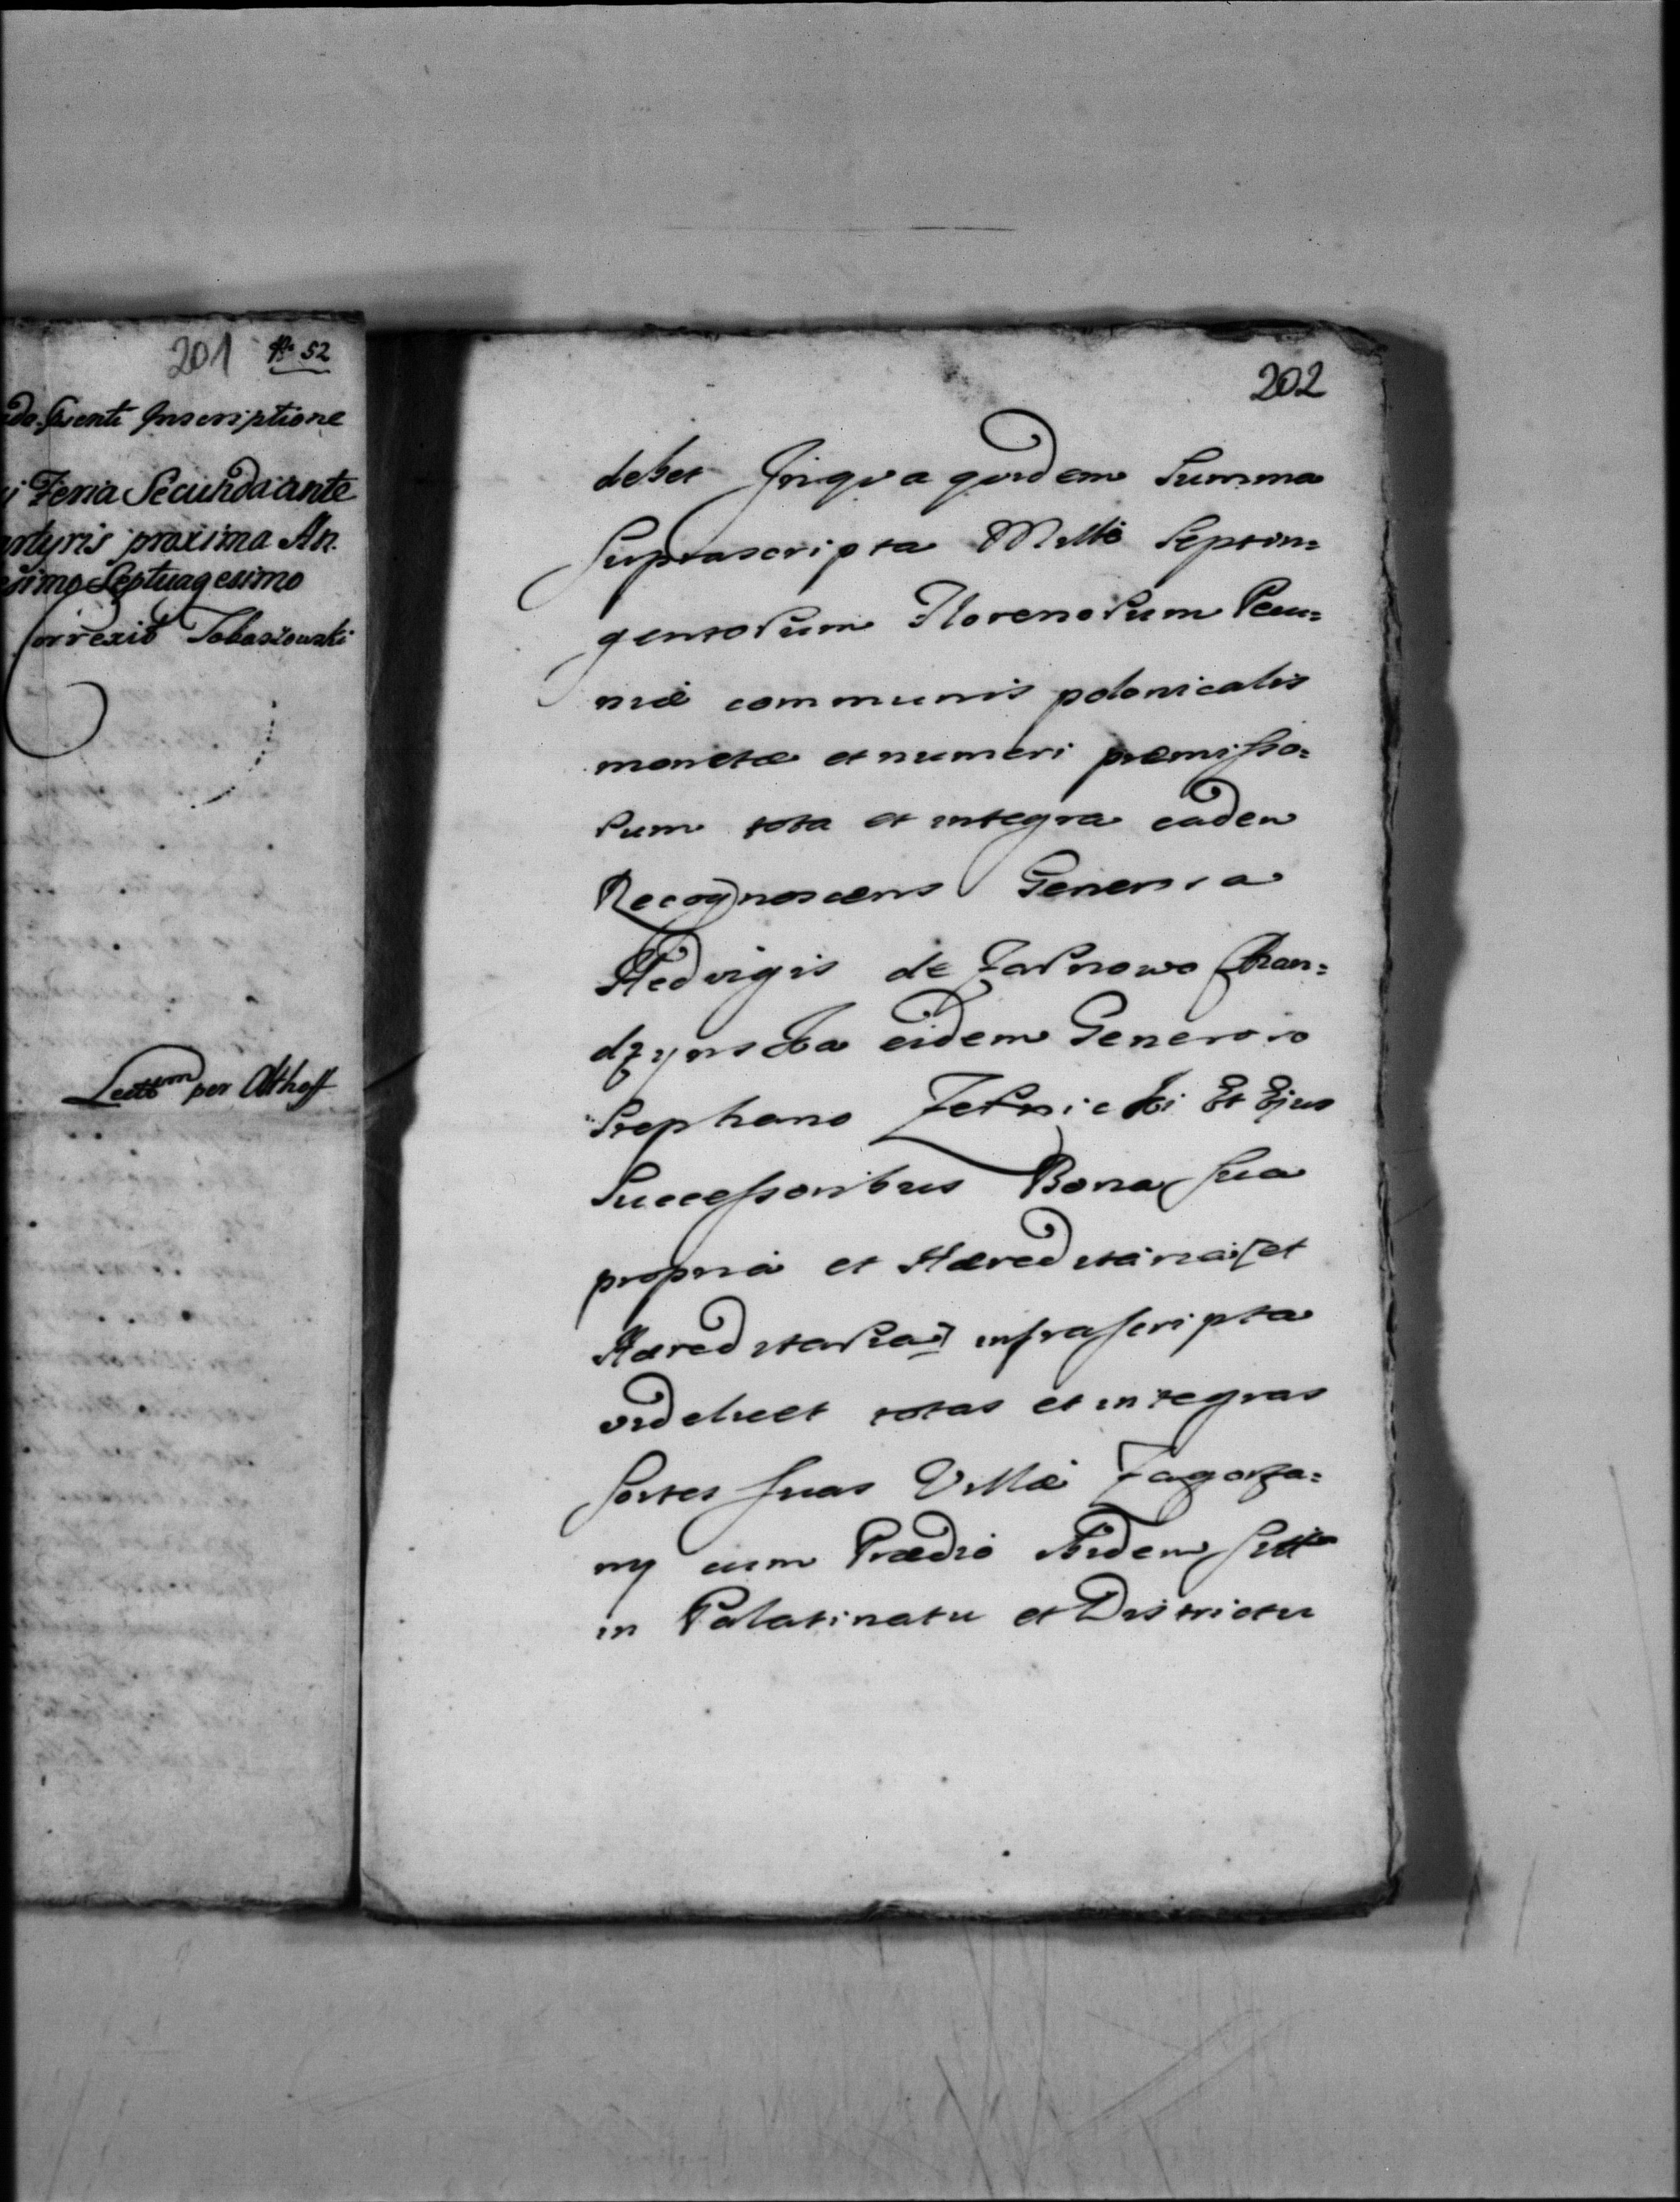 201 No 52
Inscriptione
Feria Secunda ante
proxima An.
Septuagesimo
Correxit
Lectum per Althoff
202
debet In qva qvidem Summa
Suprascripta Mille Septin=
gentorum Florenorum Pecu=
niæ communis polonicalis
monetæ et numeri præmisso=
rum tota et integra eadem
Recognoscens Generosa
Hedvigis de Zarnowo Chran=
dzynska eidem Generoso
Stephano Zernicki Et Ejus
Successoribus Bona sua
propria et Hæreditaria [et
Hæreditaria] infrascripta
videlicet totas et integras
sortes suas Villæ Zagorza=
ny cum Prædio ibidem
in Palatinatu et Districtu